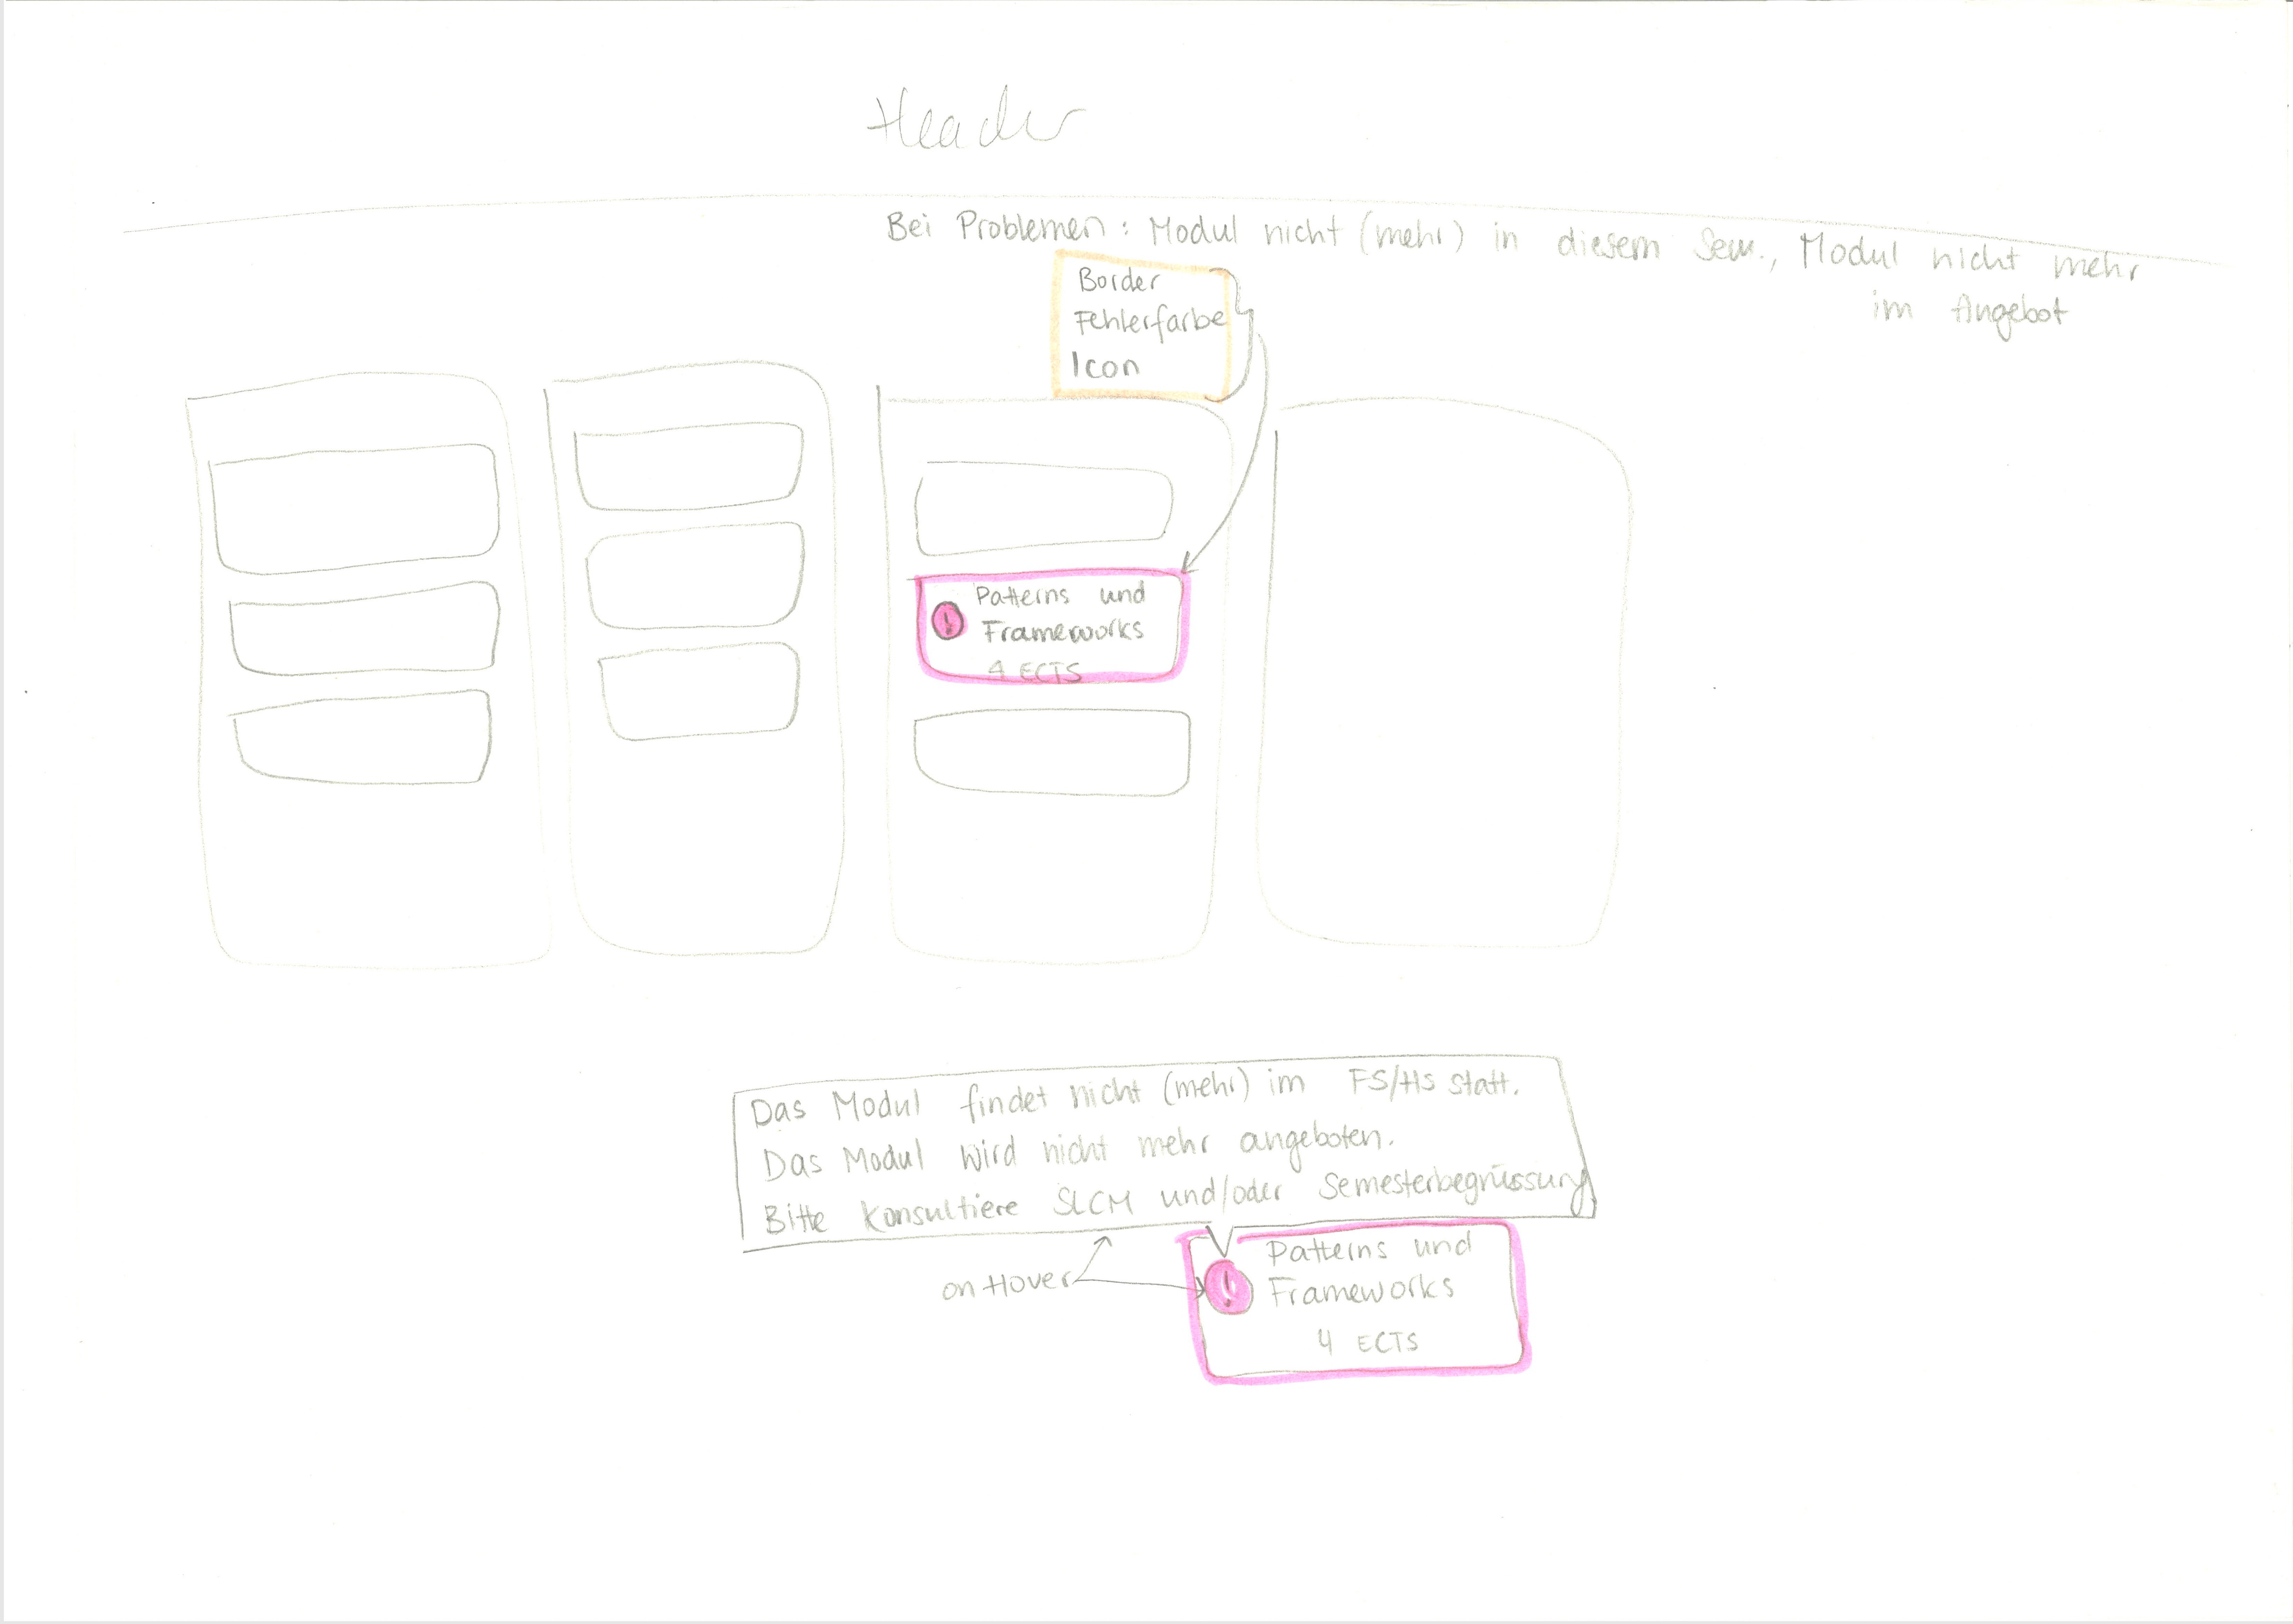 Header
Bei Problemen: Modul nicht (mehr) in diesem Sem., Modul nicht mehr
im Angebot
Border
Fehlerfarbe
Icon
! Patterns und
Frameworks
4 ECTS
Das Modul findet nicht (mehr) im FS/HS statt.
Das Modul wird nicht mehr angeboten.
Bitte konsultiere SLCM und/oder Semesterbegrüssung
on Hover
! Patterns und
Frameworks
4 ECTS